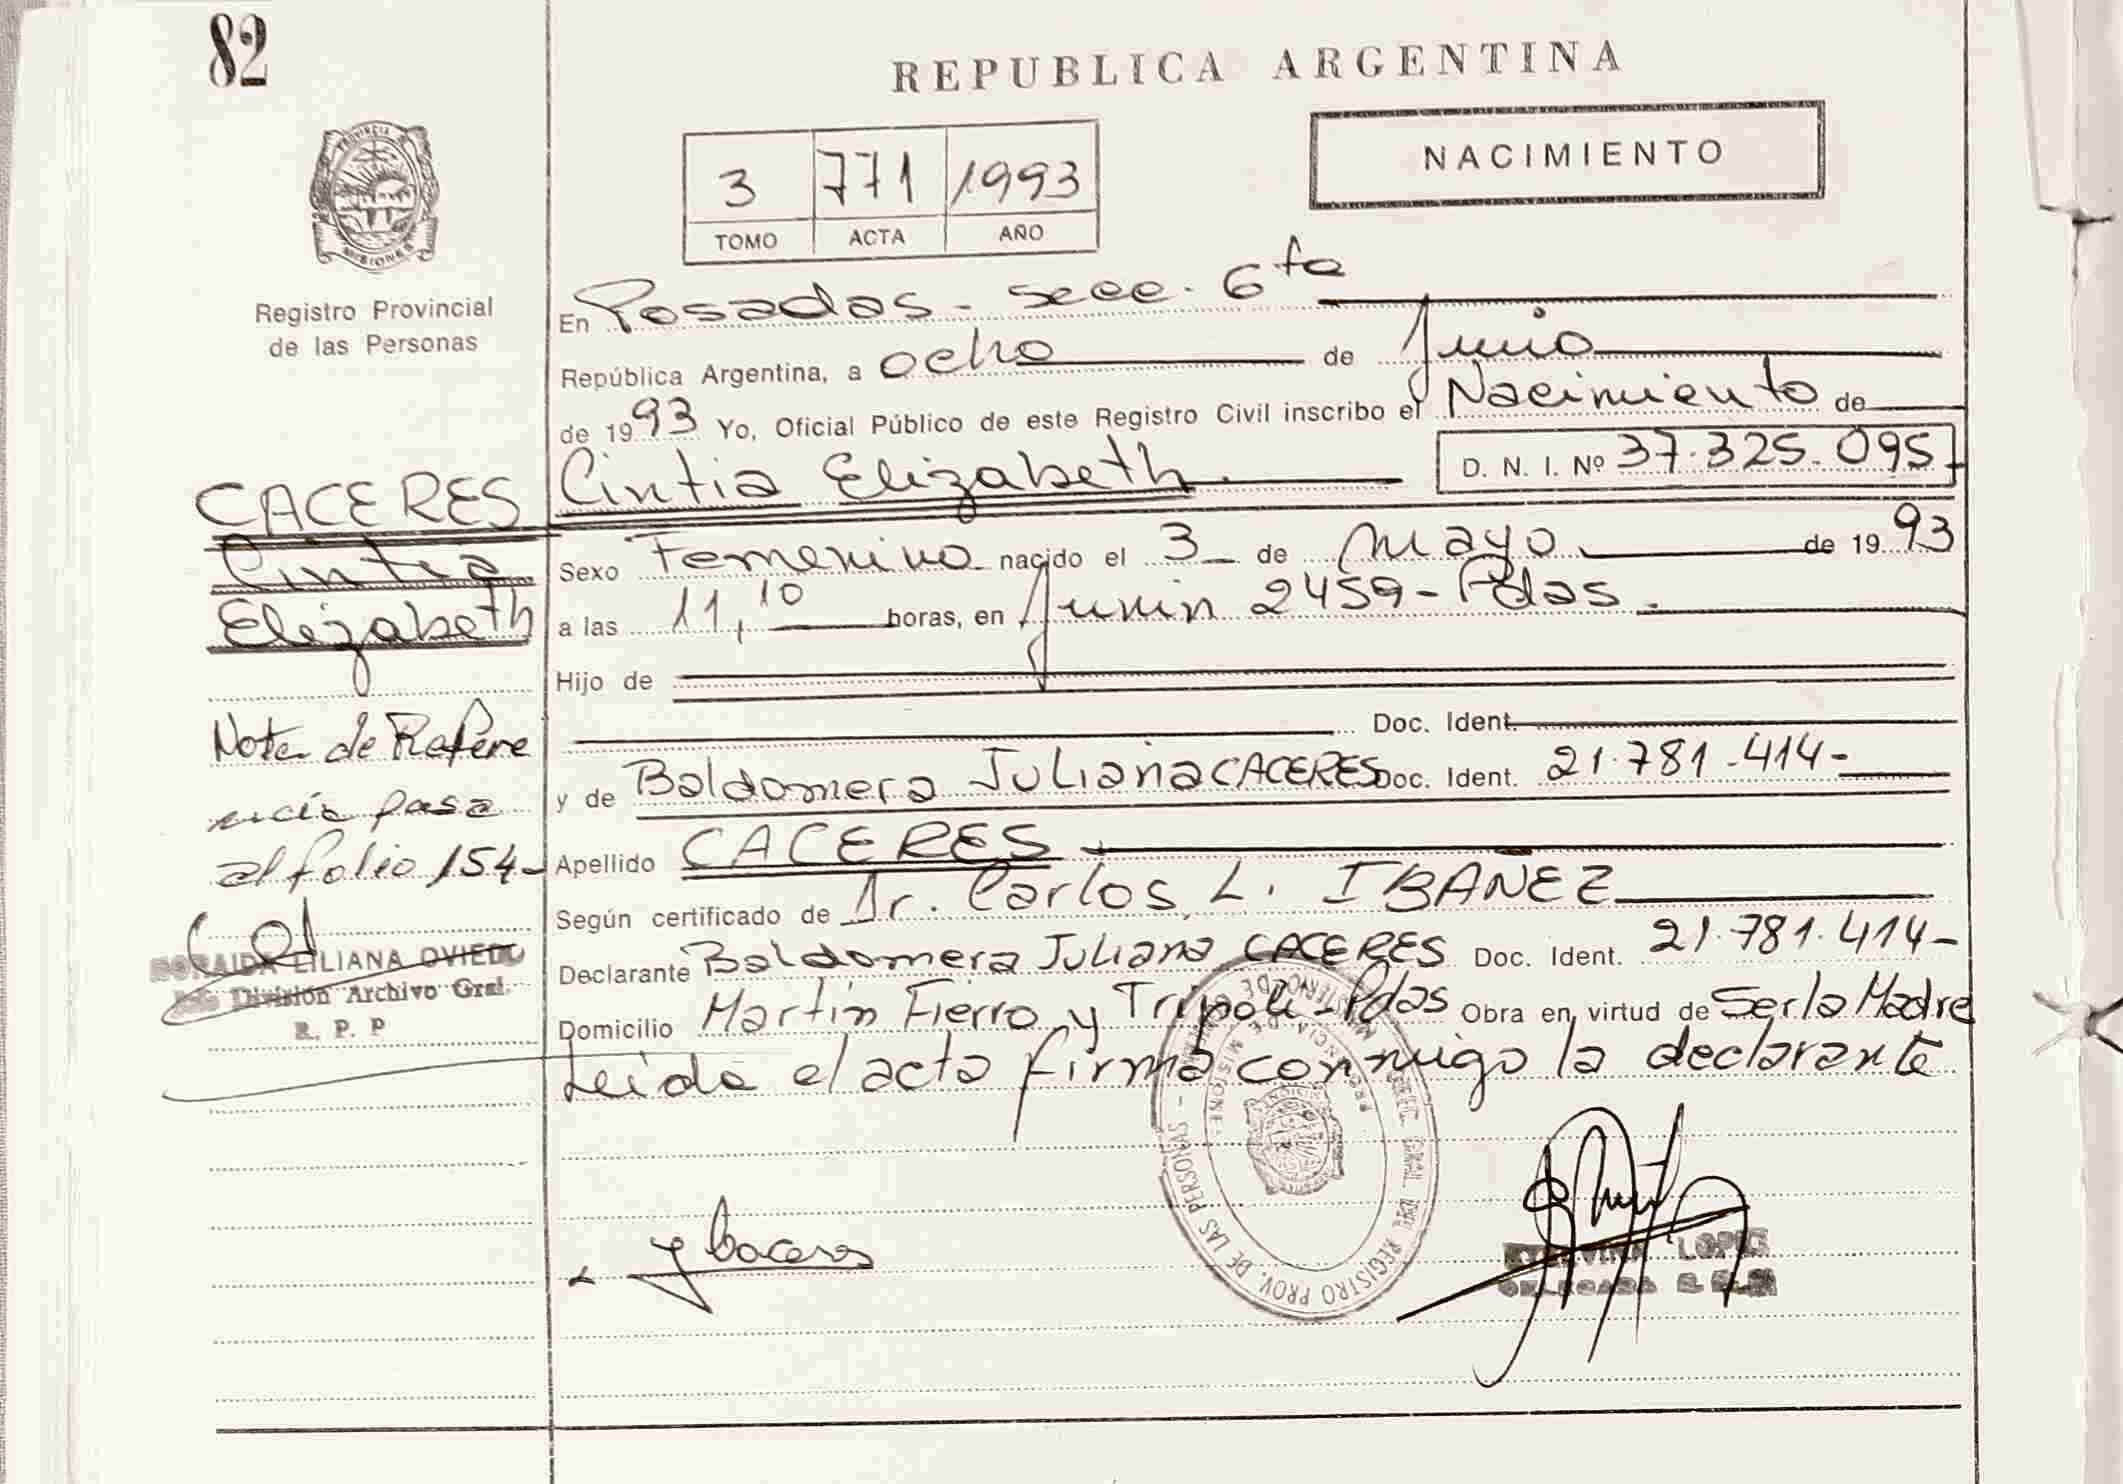 82
REPUBLICA ARGENTINA
NACIMIENTO
3 771 1993
TOMO ACTA AÑO
PROVINCIA
MISIONES
Registro Provincial
de las Personas
En Posadas - Secc. 6ta
República Argentina, a ocho de Junio
de 1993 Yo, Oficial Público de este Registro Civil inscribo el Nacimiento de
Cintia Elizabeth. D. N. I. Nº 37.325.095
Sexo Femenino nacido el 3 de Mayo de 1993
a las 11,10 horas, en Junin 2459 - Pdas.
Hijo de
Doc. Ident.
y de Baldomera Juliana CACERES Doc. Ident. 21.781.414-
Apellido CACERES
Según certificado de Dr. Carlos L. IBAÑEZ
Declarante Baldomera Juliana CACERES Doc. Ident. 21.781.414-
Domicilio Martín Fierro y Trípoli - Pdas Obra en virtud de Ser la Madre
Leida el acta firma conmigo la declarante
CACERES
Cintia
Elizabeth
Nota de Refere
ncia pasa
al folio 154-
LILIANA OVIEDO
División Archivo Gral.
R. P. P
J Caceres
REGISTRO PROV. DE LAS PERSONAS -
PROVINCIA DE MISIONES
LOPEZ